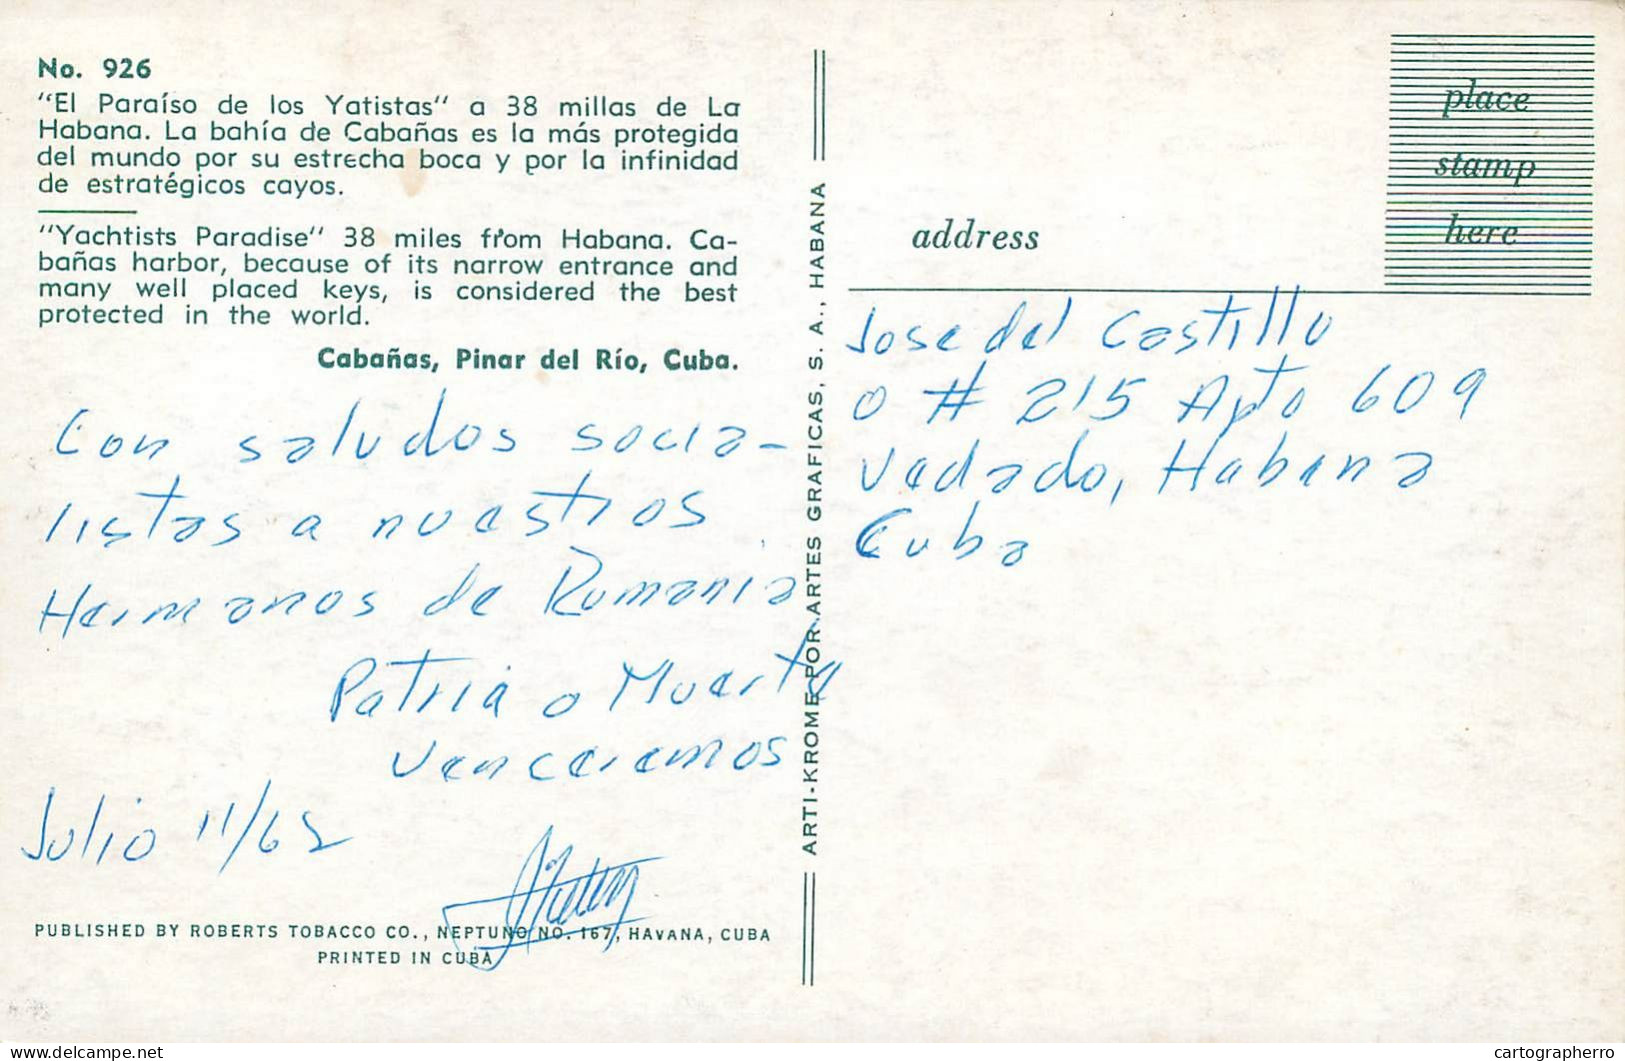 No. 926
"El Paraíso de los Yatistas" a 38 millas de La
Habana. La bahía de Cabañas es la más protegida
del mundo por su estrecha boca y por la infinidad
de estratégicos cayos.
"Yachtists Paradise" 38 miles from Habana. Ca-
bañas harbor, because of its narrow entrance and
many well placed keys, is considered the best
protected in the world.
Cabañas, Pinar del Río, Cuba.
Con saludos socia-
listas a nuestros
Hermanos de Rumania
Patria o Muerte
Venceremos
Julio 11/62
PUBLISHED BY ROBERTS TOBACCO CO., NEPTUNO NO. 167, HAVANA, CUBA
PRINTED IN CUBA
ARTI-KROME POR ARTES GRAFICAS, S. A., HABANA
place
stamp
here
address
Jose del Castillo
O # 215 Apto 609
Vedado, Habana
Cuba
delcampe.net
cartographerro